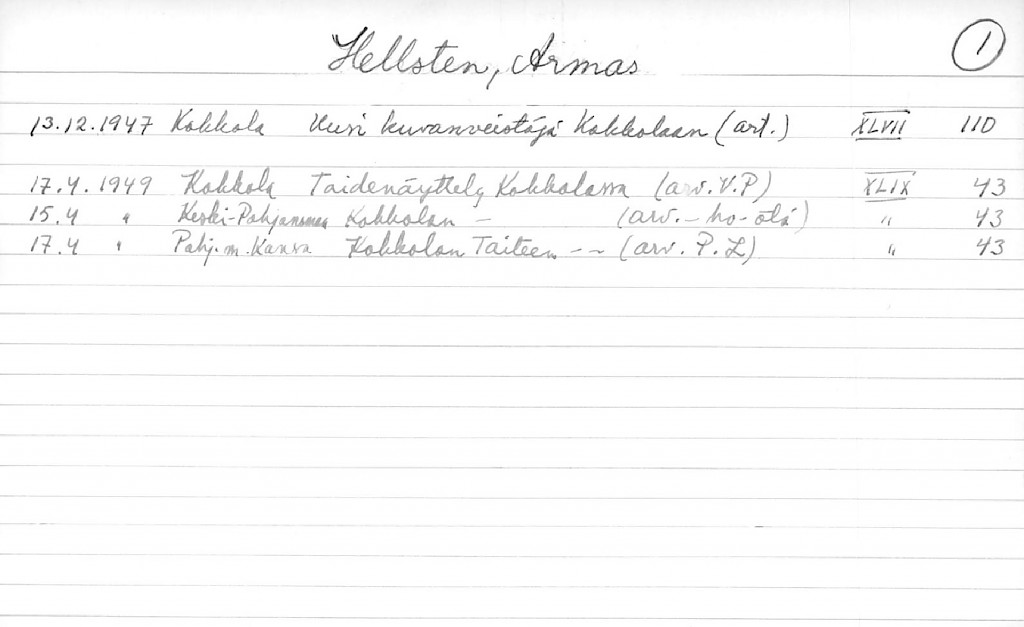 Hellsten, Armas 1
13.12.1947 Kokkola Uusi kuvanveistäjä Kokkolaan (art.) XLVII 110
17.4.1949 Kokkola Taidenäyttely Kokkolassa (arv. V.P) XLIX 43
15.4 " Keski-Pohjanmaa Kokkolan - (arv. - ho-olä) " 43
17.4 " Pohj.m. Kansa Kokkolan Taiteen -- (arv. P.L) " 43